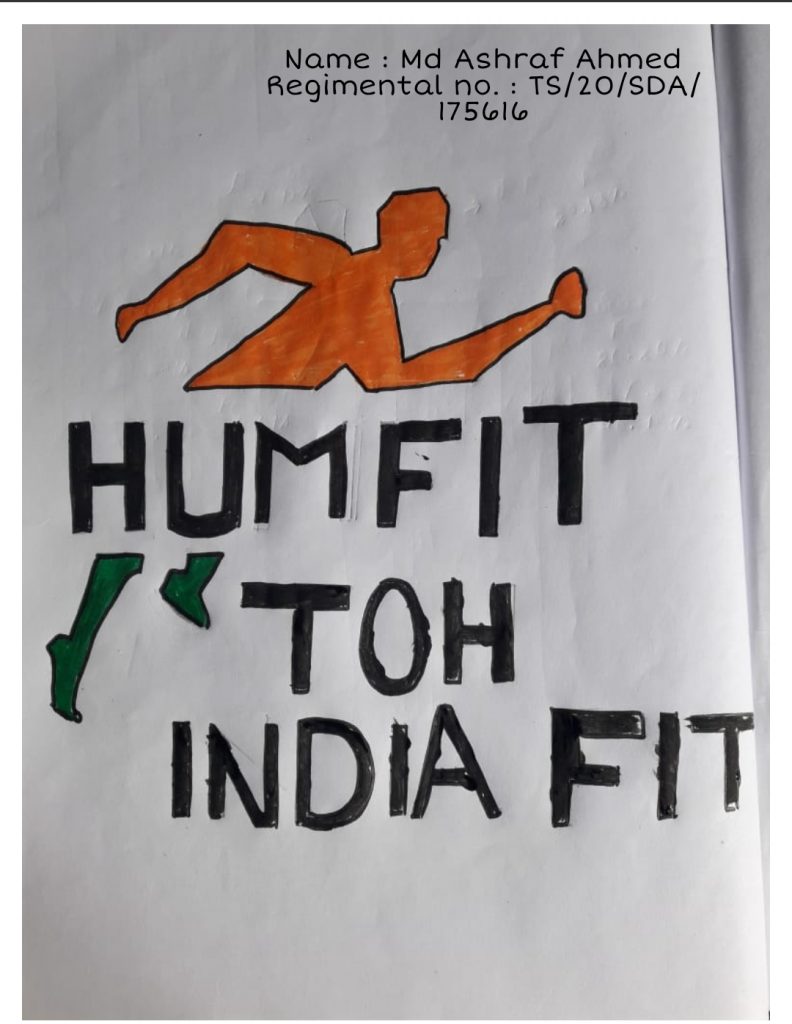 Name : Md Ashraf Ahmed
Regimental no. : TS/20/SDA/
175616
HUMFIT
TOH
INDIA FIT